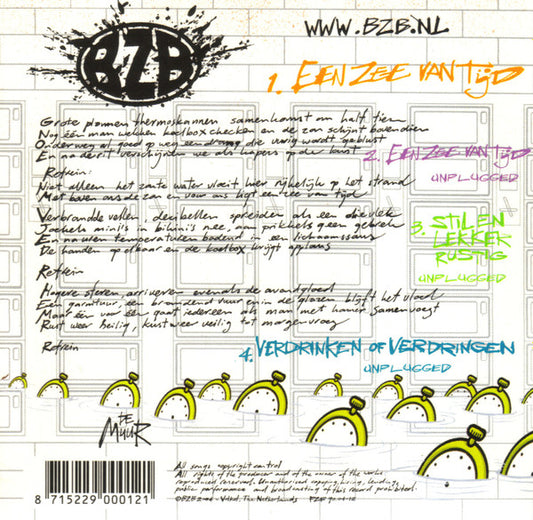 BZB
WWW.BZB.NL
1. EEN ZEE VAN TIJD
Grote plannen, thermoskannen samenkomst om half tien
Nog één man wekken koelbox checken en de zon schijnt bovendien
Onderweg al goed op weg een drang die vurig wordt geblust
En na de rit verschijnen we als kapers op de kust
2. EEN ZEE VAN TIJD
UNPLUGGED
Refrein:
Niet alleen het zoute water vloeit hier rijkelijk op het strand
Met boven ons de zon en voor ons ligt een zee van tijd
3. STIL EN
LEKKER
RUSTIG
UNPLUGGED
Verbrandde vellen, decibellen spreiden als een olievlek
Jochels mini's in bikini's nee, aan prikkels geen gebrek
En na wren temperaturen badend in een lichaamssaus
De handen op elkaar en de koelbox krijgt applaus
Refrein
Hogere sferen, arriveren evenals de avondgloed
Een garnituur, een brandend vuur en in de glazen blijft het vloed
Maar één voor één gaat iedereen als man met hamer samenvoegt
Rust weer heilig, kust weer veilig tot morgenvroeg
Refrein
4. VERDRINKEN OF VERDRINGEN
UNPLUGGED
DE
MUUR
All songs copyright control
All rights of the producer and of the owner of the works
reproduced reserved. Unauthorised copying, hiring, lending,
public performance and broadcasting of this record prohibited.
8 715229 000121